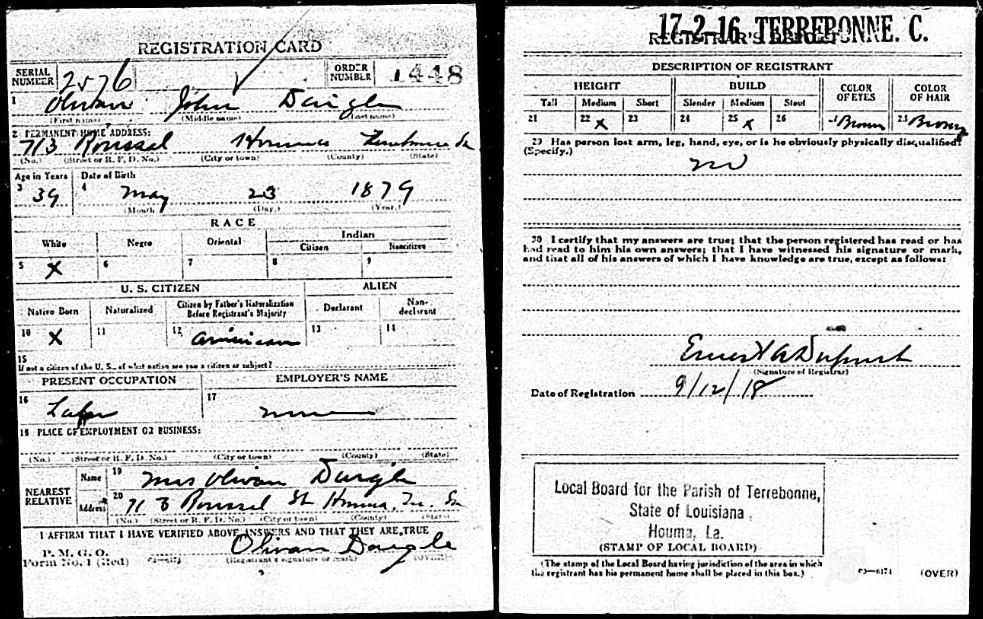 REGISTRATION CARD
SERIAL NUMBER 2576 ORDER NUMBER 1448
1 Olivan John Daigle
(First name) (Middle name) (Last name)
2 PERMANENT HOME ADDRESS:
713 Roussel Houma Terrebonne La
(No.) (Street or R. F. D. No.) (City or town) (County) (State)
Age in Years Date of Birth
3 39 4 May 23 1879
(Month.) (Day.) (Year.)
RACE
White Negro Oriental Indian
Citizen Noncitizen
5 X 6 7 8 9
U. S. CITIZEN ALIEN
Native Born Naturalized Citizen by Father's Naturalization Before Registrant's Majority Declarant Non-declarant
10 X 11 12 American 13 14
15
If not a citizen of the U. S., of what nation are you a citizen or subject?
PRESENT OCCUPATION EMPLOYER'S NAME
16 17
18 PLACE OF EMPLOYMENT OR BUSINESS:
(No.) (Street or R. F. D. No.) (City or town) (County) (State)
NEAREST RELATIVE Name 19 Mrs Olivan Daigle
Address 20 713 Roussel St Houma, La
(No.) (Street or R. F. D. No.) (City or town) (County) (State)
I AFFIRM THAT I HAVE VERIFIED ABOVE ANSWERS AND THAT THEY ARE TRUE
P. M. G. O.
Form No. 1 (Red) Olivan Daigle
(Registrant's signature or mark) (OVER)
17-2-16 TERREBONNE. C.
REGISTRAR'S REPORT
DESCRIPTION OF REGISTRANT
HEIGHT BUILD COLOR OF EYES COLOR OF HAIR
Tall Medium Short Slender Medium Stout
21 22 X 23 24 25 X 26 Brown Brown
29 Has person lost arm, leg, hand, eye, or is he obviously physically disqualified?
(Specify.)
no
30 I certify that my answers are true; that the person registered has read or has
had read to him his own answers; that I have witnessed his signature or mark,
and that all of his answers of which I have knowledge are true, except as follows:
Ernest A Dupont
(Signature of Registrar)
Date of Registration 9/12/18
Local Board for the Parish of Terrebonne,
State of Louisiana
Houma, La.
(STAMP OF LOCAL BOARD)
(The stamp of the Local Board having jurisdiction of the area in which
the registrant has his permanent home shall be placed in this box.)
03—6171 (OVER)